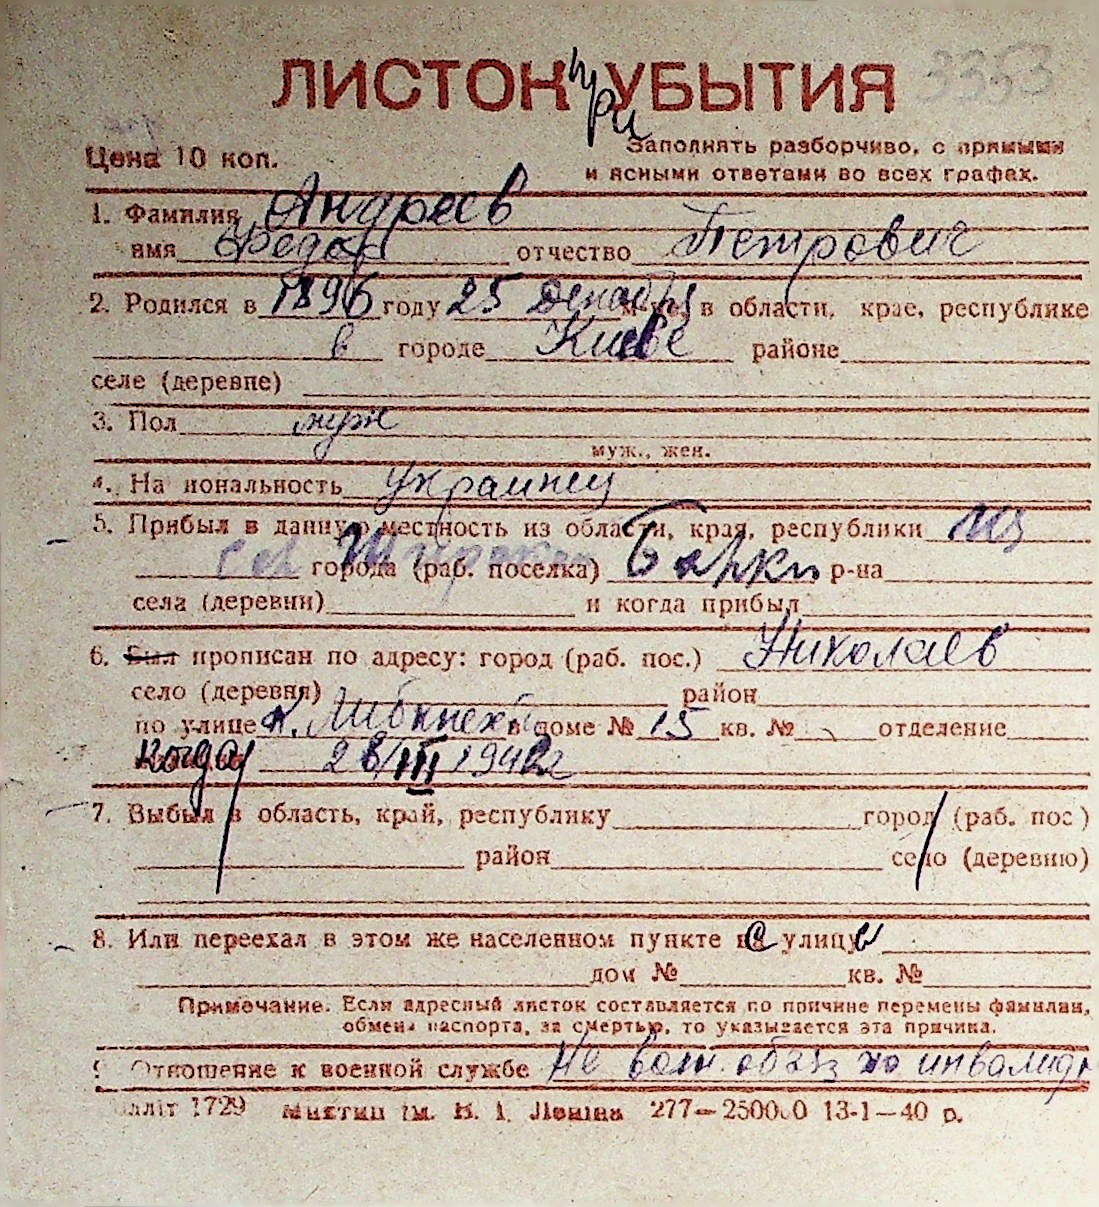 ЛИСТОК при УБЫТИЯ 3353
Цена 10 коп. Заполнять разборчиво, с прямыми
и ясными ответами во всех графах.
1. Фамилия Андреев
имя Федор отчество Петрович
2. Родился в 1896 году 25 декабря м-це, в области, крае, республике
в городе Киеве районе
селе (деревне)
3. Пол муж
муж., жен.
4. На иональность украинец
5. Прибыл в данную местность из области, края, республики из
города (раб. поселка) Барки р-на
села (деревни) и когда прибыл
6. Был прописан по адресу: город (раб. пос.) Николаев
село (деревня) район
по улице К. Либкнехта в доме № 15 кв. № отделение
когда 28/III 1942г
7. Выбыл в область, край, республику город (раб. пос.)
район село (деревню)
8. Или переехал в этом же населенном пункте с улицы
дом № кв. №
Примечание. Если адресный листок составляется по причине перемены фамилии,
обмена паспорта, за смертью, то указывается эта причина.
9 Отношение к военной службе Не воен. обяз по инвалидн
1729 ім. В. І. Леніна 277—250000 13-1—40 р.